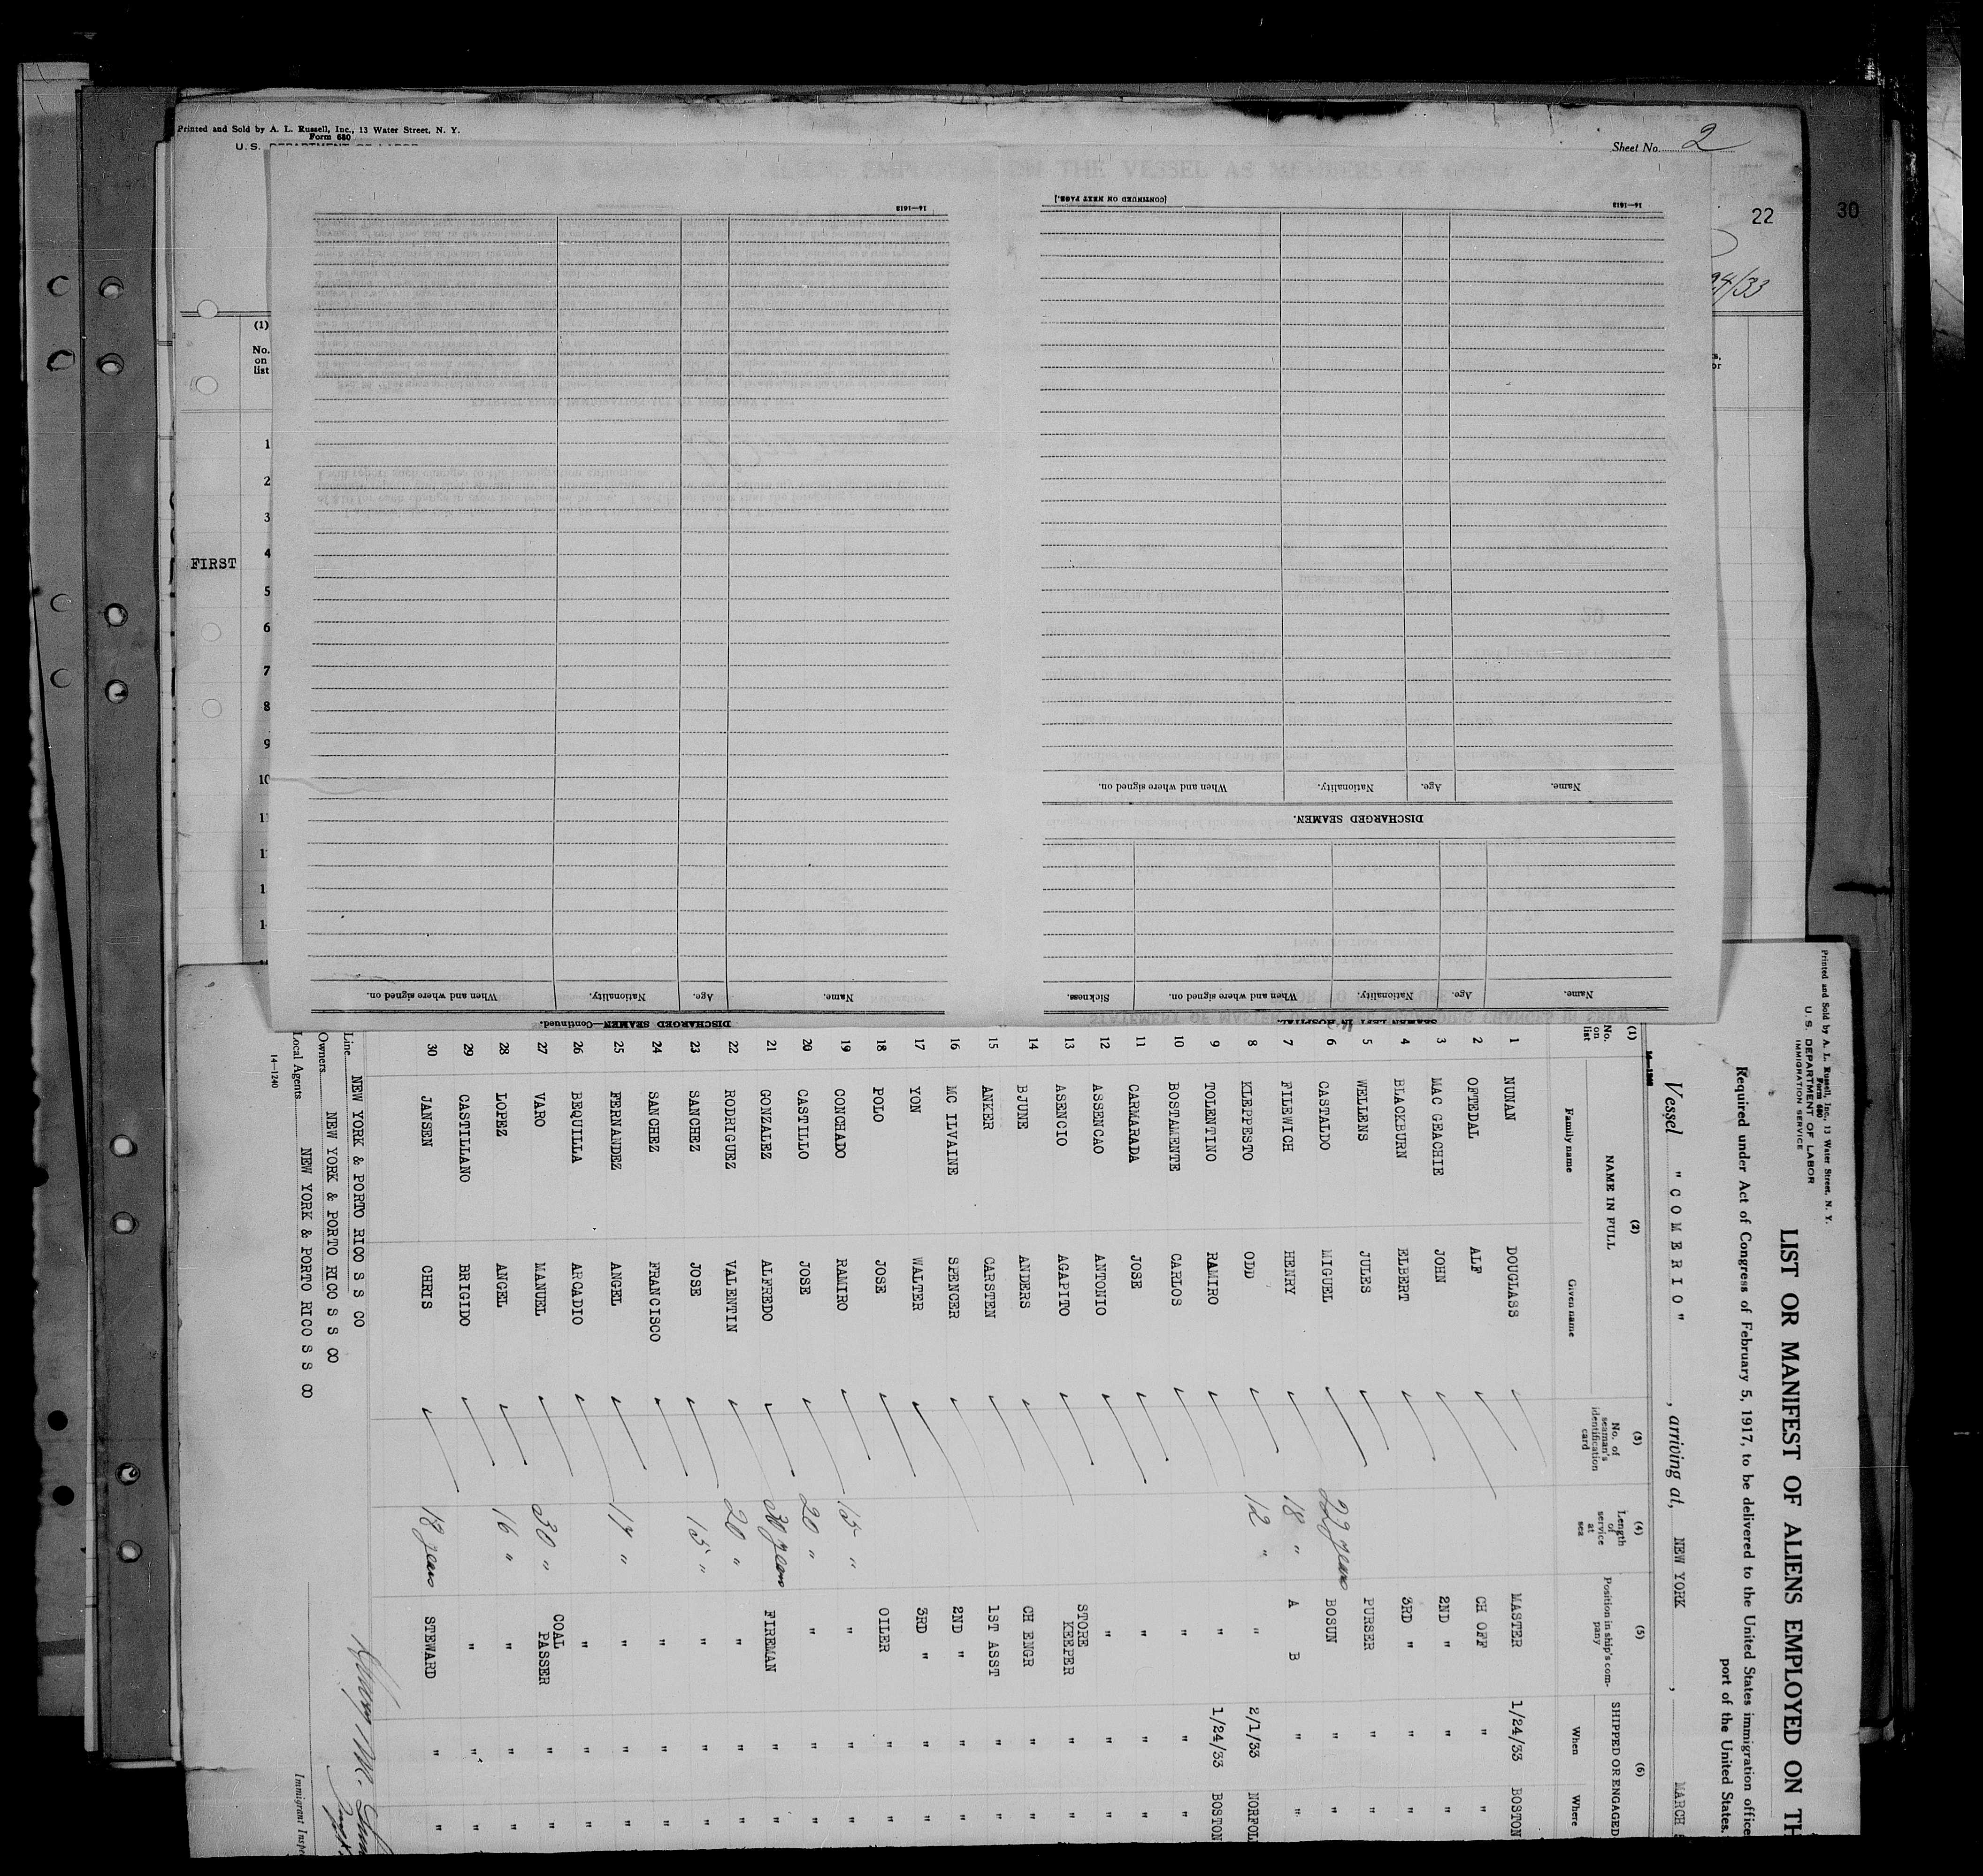 Printed and Sold by A. L. Russell, Inc., 13 Water Street, N. Y.
Form 680
U.S. DEPARTMENT OF LABOR
Sheet No. 2
22
30
24/33
(1)
No.
on
list
FIRST
1
2
3
4
5
6
7
8
9
10
14—1618
14—1618
[CONTINUED ON NEXT PAGE.]
Name.
Age.
Nationality.
When and where signed on.
DISCHARGED SEAMEN.
Name.
Age.
Nationality.
When and where signed on.
Sickness.
SEAMEN LEFT IN HOSPITAL.
Name.
Age.
Nationality.
When and where signed on.
DISCHARGED SEAMEN—Continued.
Printed and Sold by A. L. Russell, Inc., 13 Water Street, N. Y.
Form 680
U. S. DEPARTMENT OF LABOR
IMMIGRATION SERVICE
LIST OR MANIFEST OF ALIENS EMPLOYED ON TH
Required under Act of Congress of February 5, 1917, to be delivered to the United States immigration office
port of the United States.
Vessel "COMERIO", arriving at, NEW YORK, MARCH
(1) (2) (3) (4) (5) (6)
No. on list
NAME IN FULL
Family name Given name
No. of seaman's identification card
Length of service at sea
Position in ship's company
SHIPPED OR ENGAGED
When Where
1 NUNAN DOUGLASS MASTER 1/24/33 BOSTON
2 OFTEDAL ALF CH OFF " "
3 MAC GEACHIE JOHN 2ND " " "
4 BLACKBURN ELBERT 3RD " " "
5 WELLENS JULES PURSER " "
6 CASTALDO MIGUEL 22 years BOSUN " "
7 FILEWICH HENRY 18 " A B " "
8 KLEPPESTO ODD 12 " " 2/1/33 NORFOL
9 TOLENTINO RAMIRO " 1/24/33 BOSTON
10 BOSTAMENTE CARLOS " " "
11 CARMARADA JOSE " " "
12 ASSENCAO ANTONIO " " "
13 ASENCIO AGAPITO STORE KEEPER " "
14 BJUNE ANDERS CH ENGR " "
15 ANKER CARSTEN 1ST ASST " "
16 MC ILVAINE SPENCER 2ND " " "
17 YON WALTER 3RD " " "
18 POLO JOSE OILER " "
19 CONCHADO RAMIRO 15 " " " "
20 CASTILLO JOSE 20 " " " "
21 GONZALEZ ALFREDO 30 years FIREMAN " "
22 RODRIGUEZ VALENTIN 20 " " " "
23 SANCHEZ JOSE 15 " " " "
24 SANCHEZ FRANCISCO " " "
25 FERNANDEZ ANGEL 17 " " " "
26 BEQUILLA ARCADIO " " "
27 VARO MANUEL 30 " COAL PASSER " "
28 LOPEZ ANGEL 16 " " " "
29 CASTILLANO BRIGIDO " " "
30 JANSEN CHRIS 18 years STEWARD " "
Line NEW YORK & PORTO RICO S S CO
Owners NEW YORK & PORTO RICO S S CO
Local Agents NEW YORK & PORTO RICO S S CO
14—1240
Immigrant Inspe